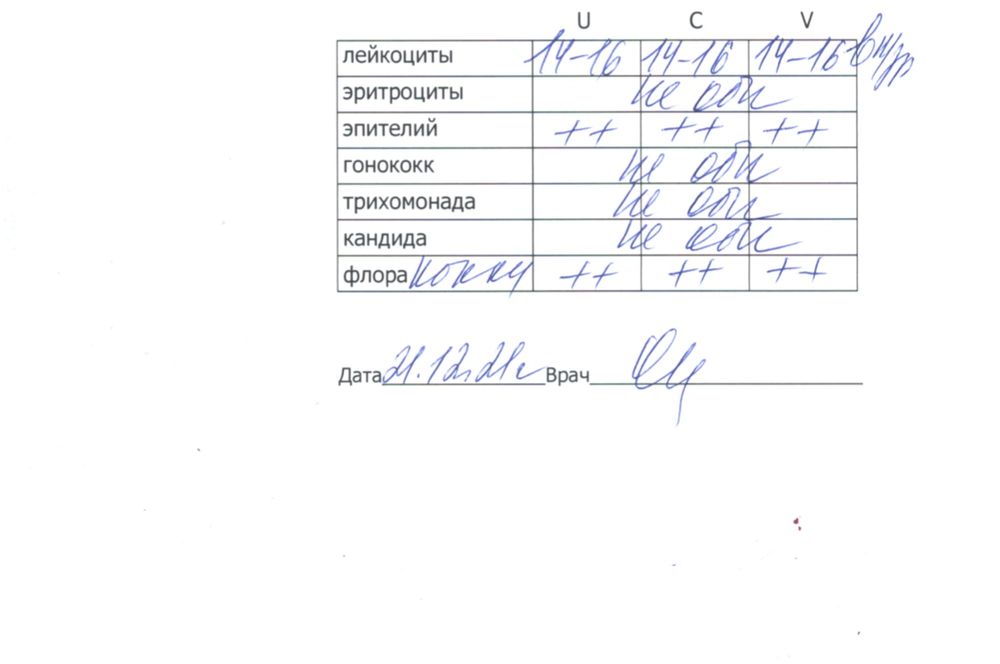 U C V
лейкоциты 14-16 14-16 14-16 в п/зр
эритроциты не обн
эпителий ++ ++ ++
гонококк не обн
трихомонада не обн
кандида не обн
флора кокки ++ ++ ++
Дата 21.12.21г Врач